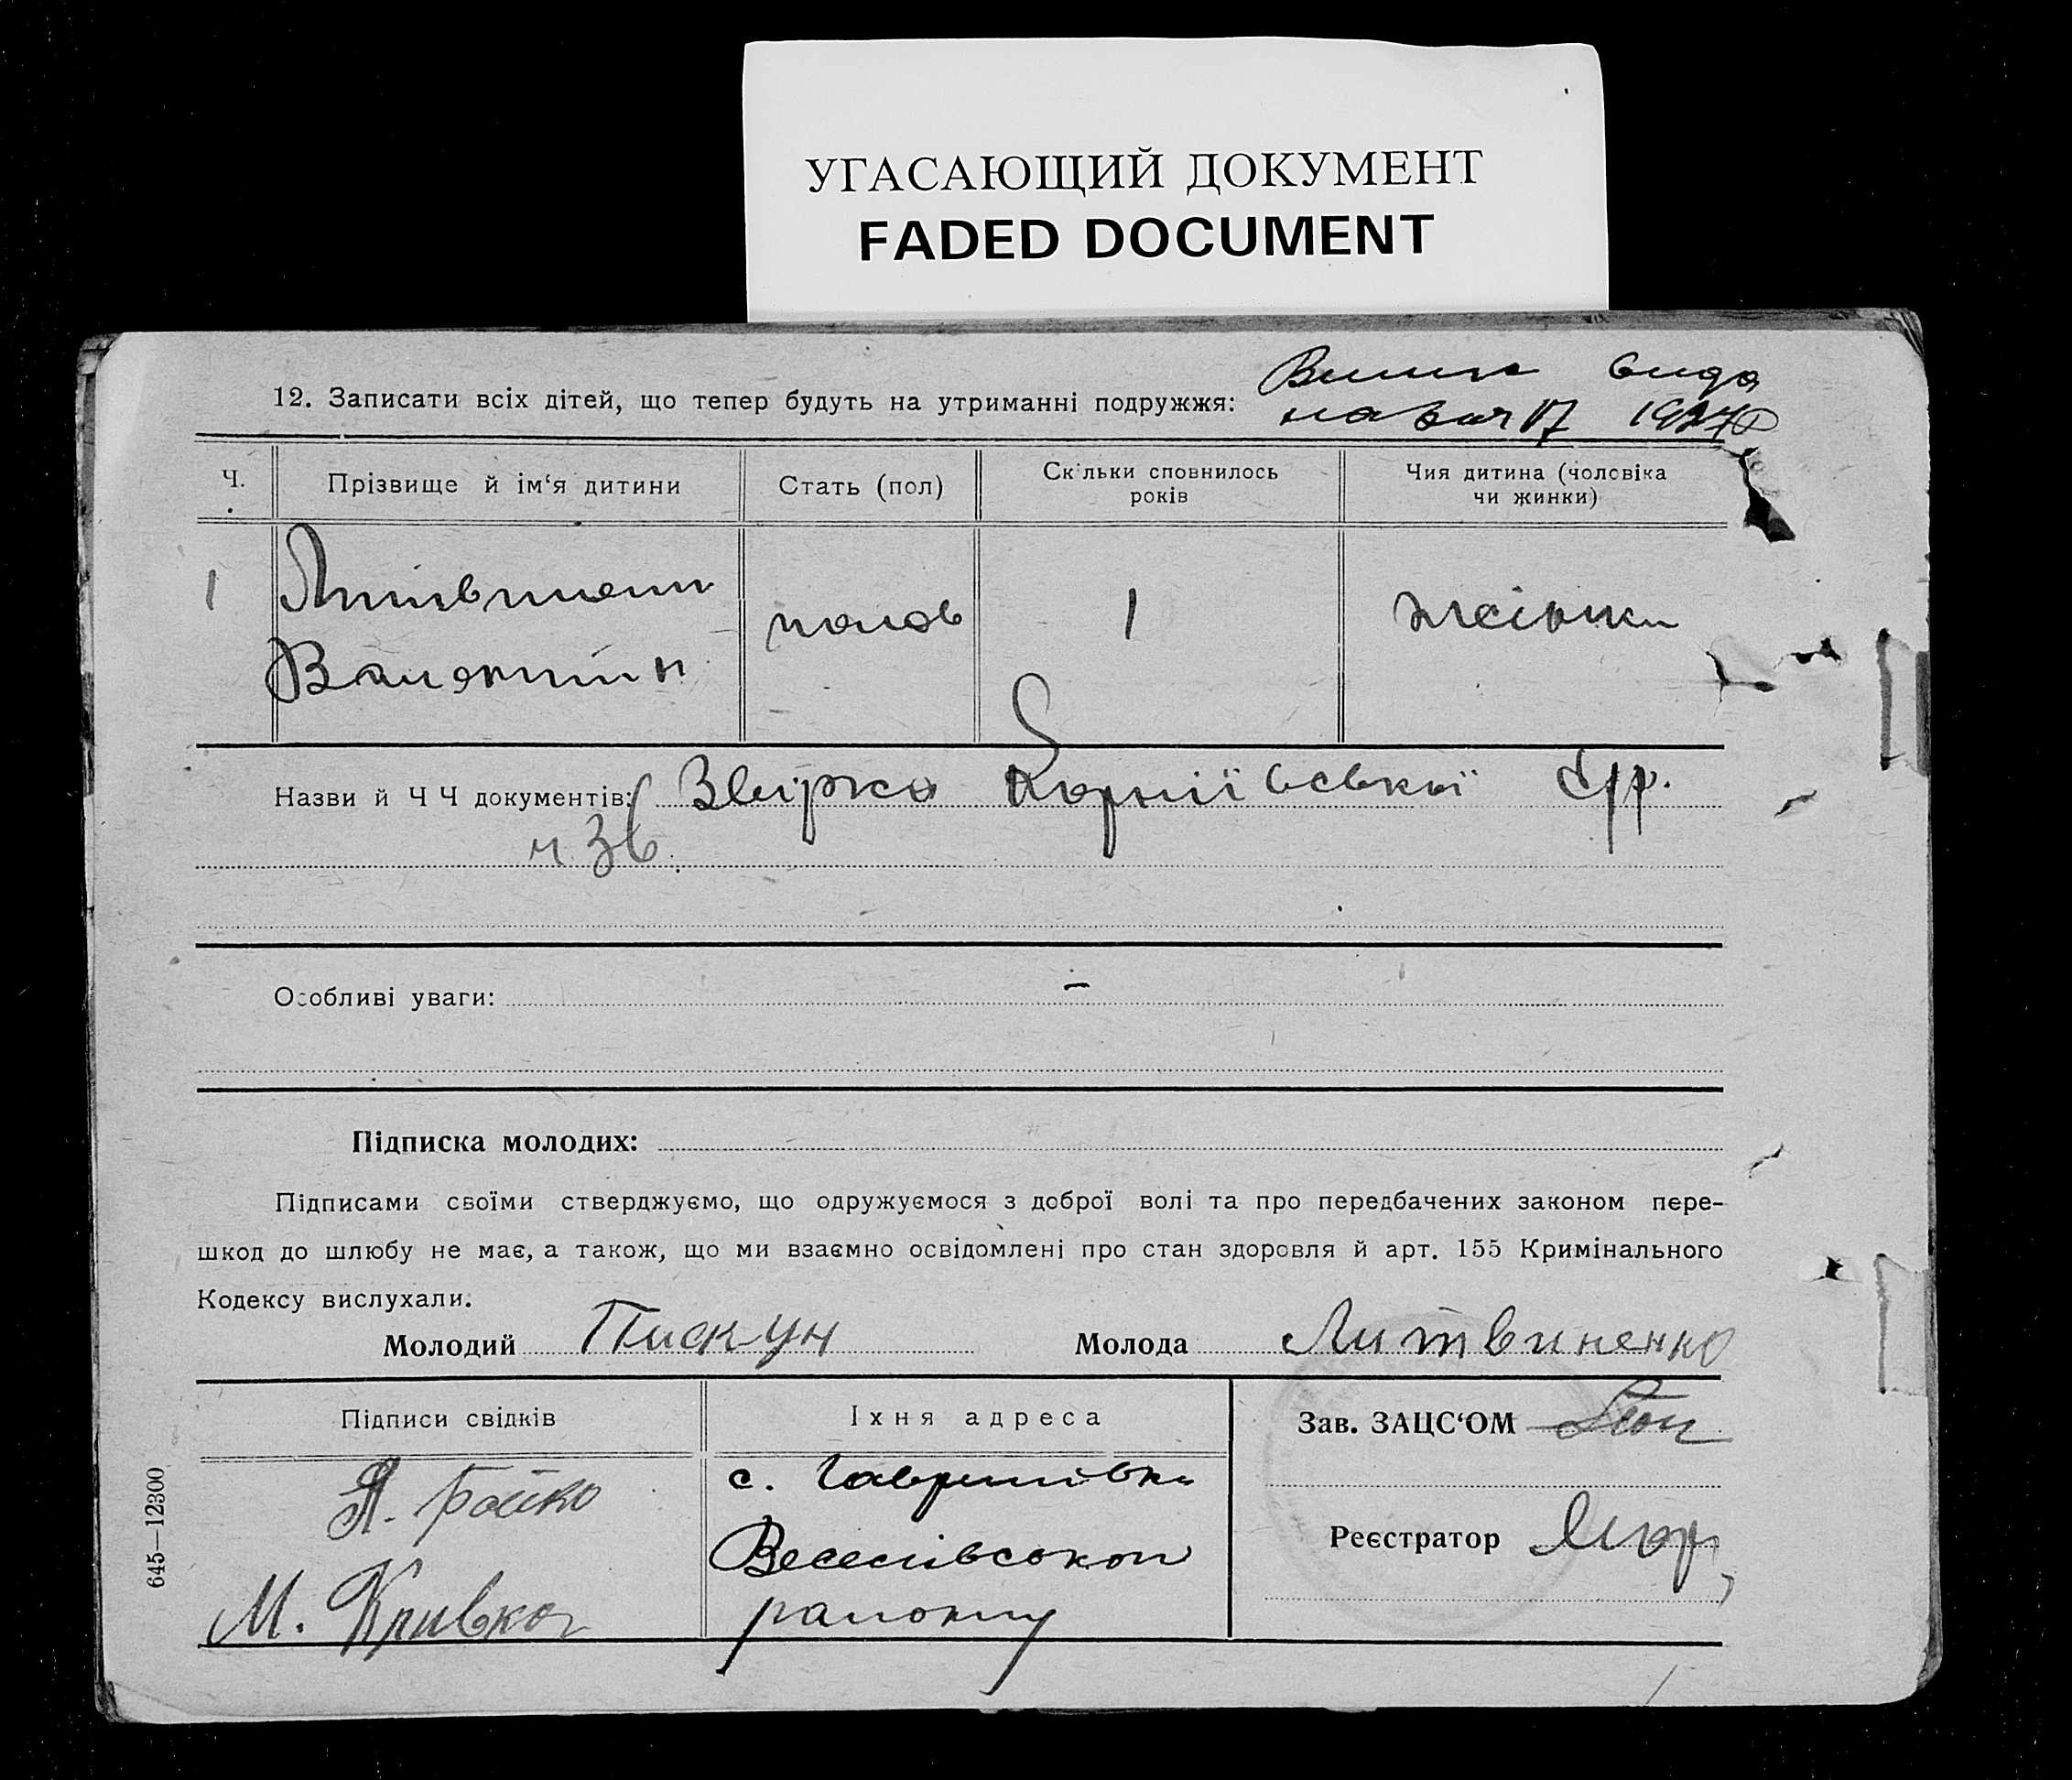 УГАСАЮЩИЙ ДОКУМЕНТ
FADED DOCUMENT
12. Записати всіх дітей, що тепер будуть на утриманні подружжя:
Ч.
Прізвище й ім‘я дитини
Стать (пол)
Скільки сповнилось
років
Чия дитина (чоловіка
чи жинки)
1
Валентин
1
жінки
Назви й Ч Ч документів:
ч 36
Особливі уваги: –
Підписка молодих:
Підписами своїми стверджуємо, що одружуємося з доброї волі та про передбачених законом пере-
шкод до шлюбу не має, а також, що ми взаємно освідомлені про стан здоровля й арт. 155 Кримінального
Кодексу вислухали.
Молодий Пискун
Молода Литвиненко
Підписи свідків
Їхня адреса
Зав. ЗАЦС‘ОМ
Я. Бойко
с. Гаврилівки
Веселівського
району
Реєстратор
М.
645—12300